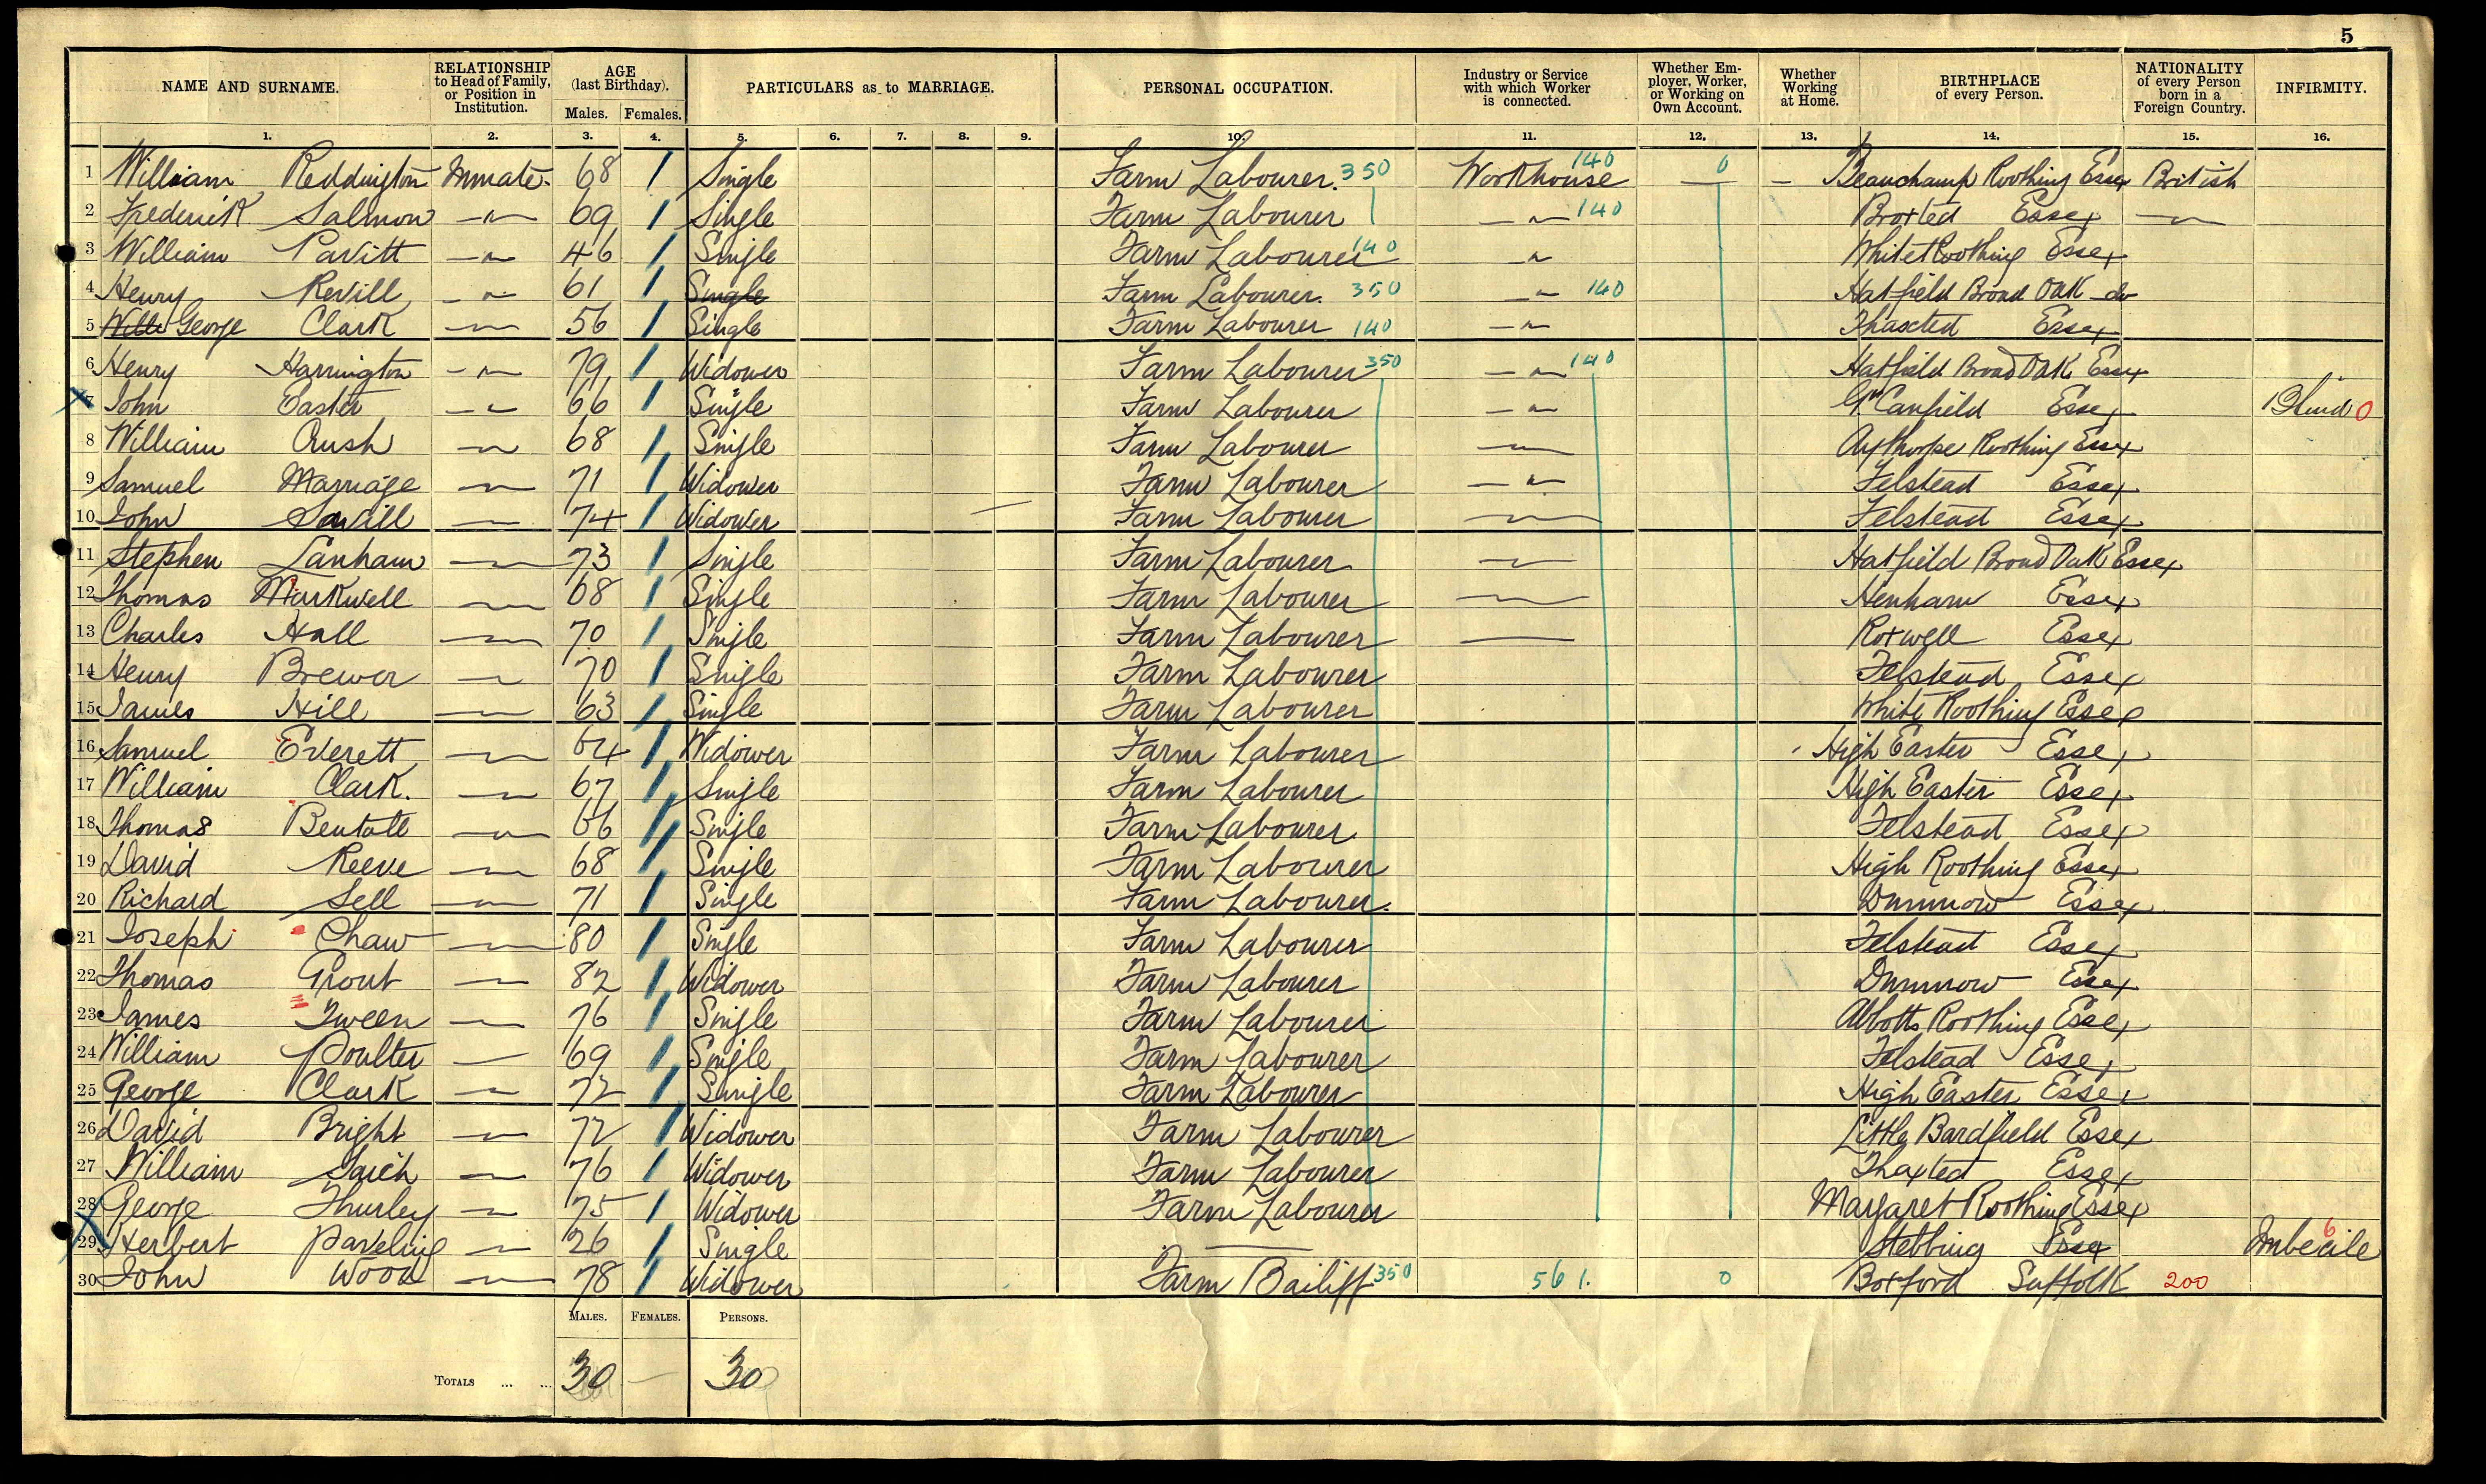 5
NAME AND SURNAME. RELATIONSHIP to Head of Family, or Position in Institution. AGE (last Birthday). Males. Females. PARTICULARS as to MARRIAGE. PERSONAL OCCUPATION. Industry or Service with which Worker is connected. Whether Employer, Worker, or Working on Own Account. Whether Working at Home. BIRTHPLACE of every Person. NATIONALITY of every Person born in a Foreign Country. INFIRMITY.
1. 2. 3. 4. 5. 6. 7. 8. 9. 10. 11. 12. 13. 14. 15. 16.
1 William Reddington Inmate 68 Single Farm Labourer. 350 Workhouse 140 0 — Beauchamp Roothing Essex British
2 Frederick Salmon —"— 69 Single Farm Labourer —"— 140 Broxted Essex —"—
3 William Pavitt —"— 46 Single Farm Labourer 140 " White Roothing Essex
4 Henry Revill —"— 61 Single Farm Labourer. 350 —"— 140 Hatfield Broad Oak do
5 Willi George Clark —"— 56 Single Farm Labourer 140 —"— Thaxted Essex
6 Henry Harrington —"— 79 Widower Farm Labourer 350 —"— 140 Hatfield Broad Oak Essex
7 John Easter —"— 66 Single Farm Labourer —"— Gt Canfield Essex Blind 0
8 William Rush —"— 68 Single Farm Labourer —"— Aythorpe Roothing Essex
9 Samuel Marriage —"— 71 Widower Farm Labourer —"— Felstead Essex
10 John Savill —"— 74 Widower Farm Labourer —"— Felstead Essex
11 Stephen Lanham —"— 73 Single Farm Labourer —"— Hatfield Broad Oak Essex
12 Thomas Markwell —"— 68 Single Farm Labourer —"— Henham Essex
13 Charles Hall —"— 70 Single Farm Labourer — Roxwell Essex
14 Henry Brewer —"— 70 Single Farm Labourer Felstead Essex
15 James Hill —"— 63 Single Farm Labourer White Roothing Essex
16 Samuel Everett —"— 64 Widower Farm Labourer High Easter Essex
17 William Clark. —"— 67 Single Farm Labourer High Easter Essex
18 Thomas Bentall —"— 66 Single Farm Labourer Felstead Essex
19 David Reeve —"— 68 Single Farm Labourer High Roothing Essex
20 Richard Sell —"— 71 Single Farm Labourer. Dunmow Essex
21 Joseph Chaw —"— 80 Single Farm Labourer Felstead Essex
22 Thomas Grout —"— 82 Widower Farm Labourer Dunmow Essex
23 James Tween —"— 76 Single Farm Labourer Abbotts Roothing Essex
24 William Poulter —"— 69 Single Farm Labourer Felstead Essex
25 George Clark —"— 72 Single Farm Labourer High Easter Essex
26 David Bright —"— 72 Widower Farm Labourer Little Bardfield Essex
27 William Saich —"— 76 Widower Farm Labourer Thaxted Essex
28 George Thurley —"— 75 Widower Farm Labourer Margaret Roothing Essex
29 Herbert Paveling —"— 26 Single — Stebbing Essex Imbecile 6
30 John Wood —"— 78 Widower Farm Bailiff 350 561. 0 Boxford Suffolk 200
MALES. FEMALES. PERSONS.
TOTALS ... ... 30 — 30